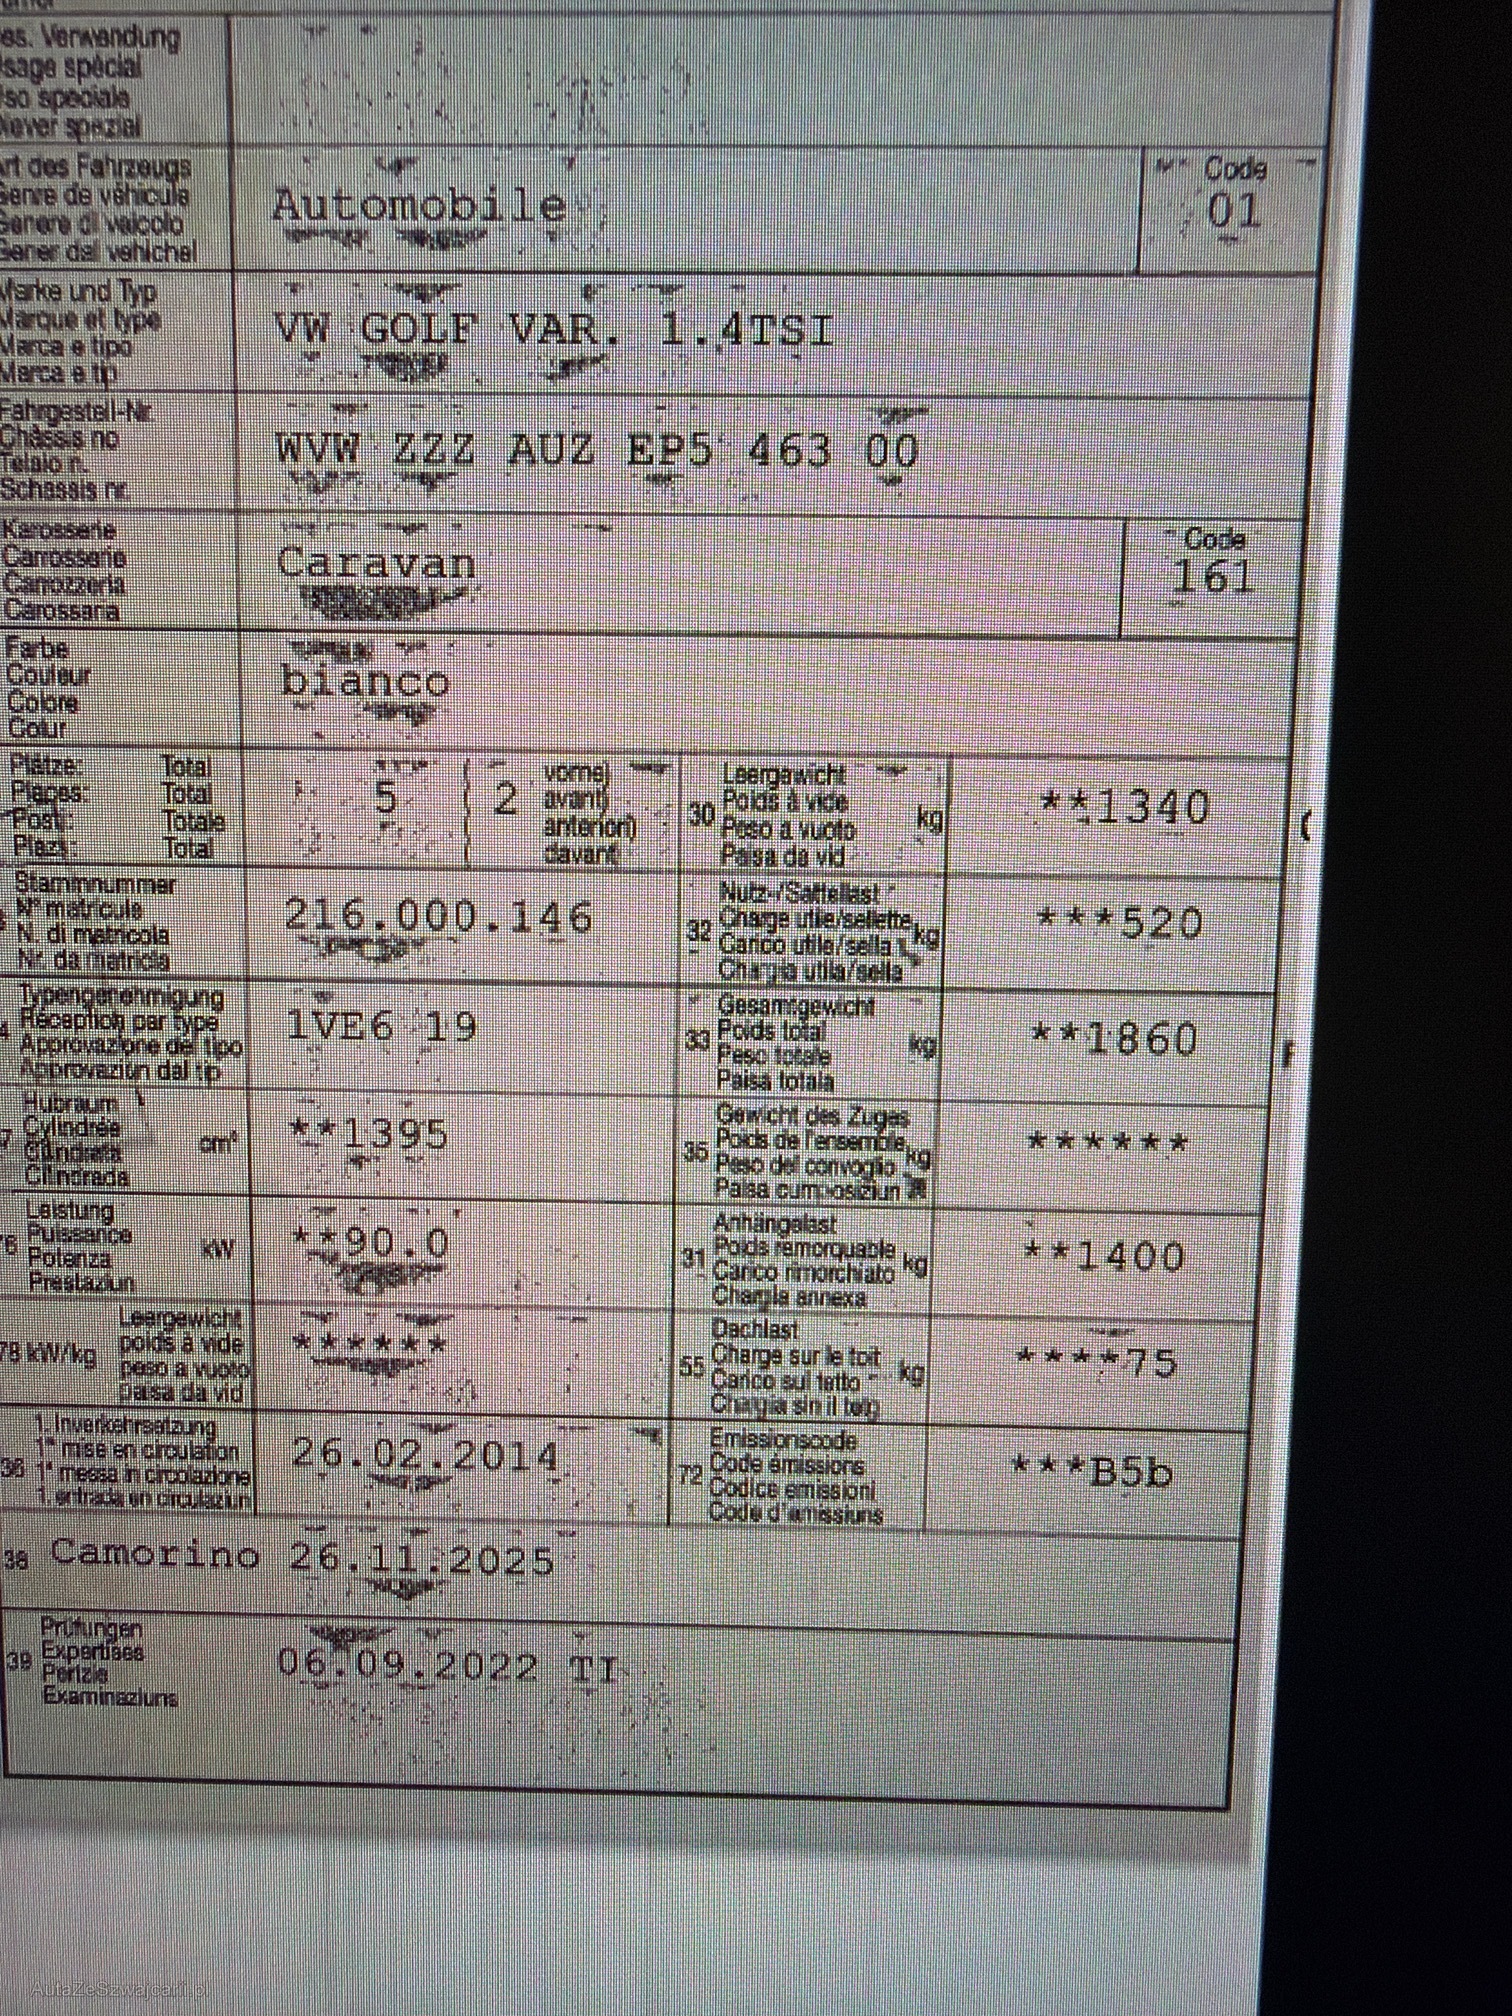 es. Verwendung
sage spécial
so speciale
iever spezial
rt des Fahrzeugs
Genre de véhicule
Genere di veicolo
Gener dal vehichel
Automobile
Code
01
Marke und Typ
Marque et type
Marca e tipo
Marca e tip
VW GOLF VAR. 1.4TSI
Fahrgestell-Nr.
Châssis no
Telaio n.
Schassis nr.
WVW ZZZ AUZ EP5 463 00
Karosserie
Carrosserie
Carrozzeria
Carossaria
Caravan
Code
161
Farbe
Couleur
Colore
Colur
bianco
Plätze: Total
Places: Total
Posti: Totale
Plazs: Total
5
2
vorne)
avant)
anteriori)
davant
30
Leergewicht
Poids à vide
Peso a vuoto
Paisa da vid
kg
**1340
Stammnummer
N° matricule
N. di matricola
Nr. da matricla
216.000.146
32
Nutz-/Sattellast
Charge utile/sellette
Carico utile/sella
Chargia utila/sella
kg
***520
Typengenehmigung
Réception par type
Approvazione del tipo
Approvaziun dal tip
1VE6 19
33
Gesamtgewicht
Poids total
Peso totale
Paisa totala
kg
**1860
7
Hubraum
Cylindrée
Cilindrata
Cilindrada
cm³
**1395
35
Gewicht des Zuges
Poids de l'ensemble
Peso del convoglio
Paisa cumposiziun
kg
******
76
Leistung
Puissance
Potenza
Prestaziun
kW
**90.0
31
Anhängelast
Poids remorquable
Carico rimorchiato
Chargia annexa
kg
**1400
78 kW/kg
Leergewicht
poids à vide
peso a vuoto
paisa da vid
******
55
Dachlast
Charge sur le toit
Carico sul tetto
Chargia sin il tetg
kg
****75
36
1. Inverkehrsetzung
1re mise en circulation
1a messa in circolazione
1. entrada en circulaziun
26.02.2014
72
Emissionscode
Code émissions
Codice emissioni
Code d'emissiuns
***B5b
38 Camorino 26.11.2025
39
Prüfungen
Expertises
Perizie
Examinaziuns
06.09.2022 TI
AutaZeSzwajcarii.pl